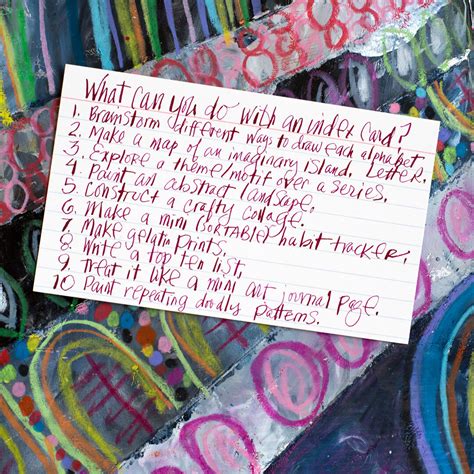 What can you do with an index card?
1. Brainstorm different ways to draw each alphabet letter.
2. Make a map of an imaginary island.
3. Explore a theme/motif over a series.
4. Paint an abstract landscape.
5. Construct a crafty collage.
6. Make a mini (SORTABLE) habit tracker.
7. Make gelatin prints.
8. Write a top ten list.
9. Treat it like a mini art journal page.
10 Paint repeating doodly patterns.